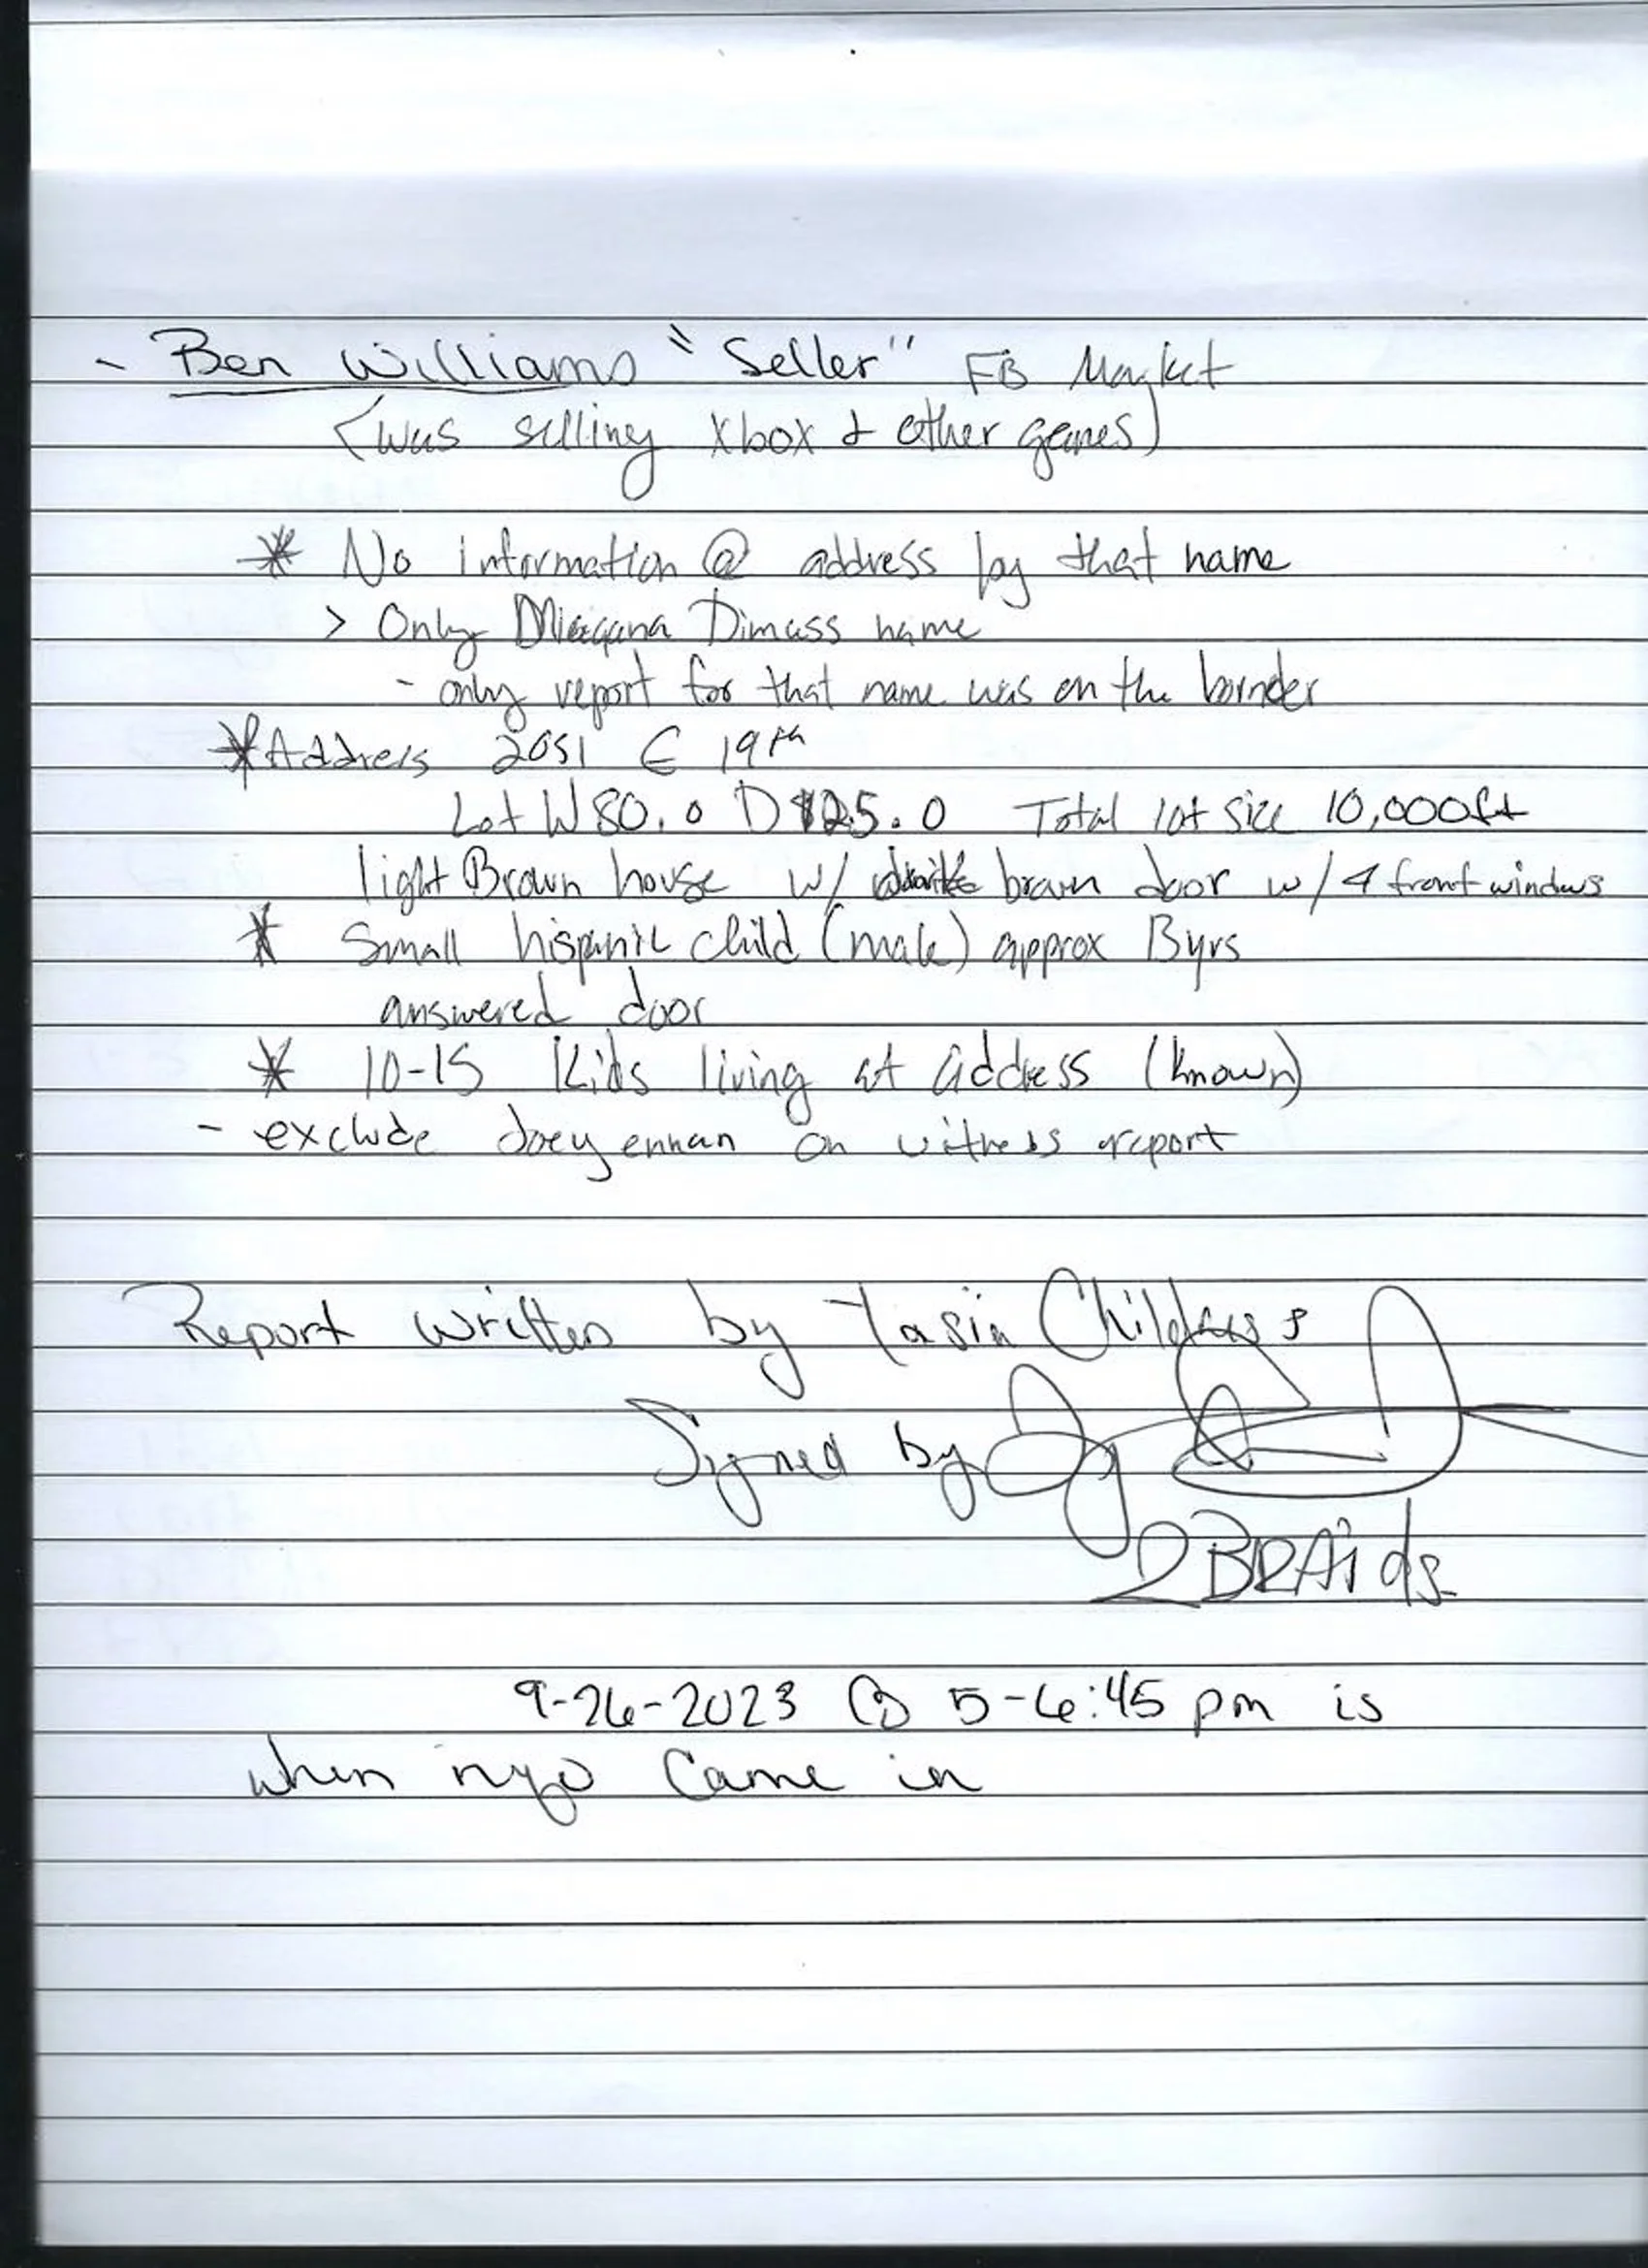 - Ben Williams "Seller" FB Market
(was selling Xbox & other games)
* No information @ address by that name
> Only Dimass name
- only report for that name was on the border
*Address 2051 E 19th
Lot W80.0 D125.0 Total lot size 10,000ft
light Brown house w/ brown door w/ 4 front windows
* Small hispanic child (male) approx 13yrs
answered door
* 10-15 Kids living at address (known)
- exclude on witness report
Report written by Tasia Childress
Signed by
2BRAids
9-26-2023 @ 5-6:45 pm is
when came in